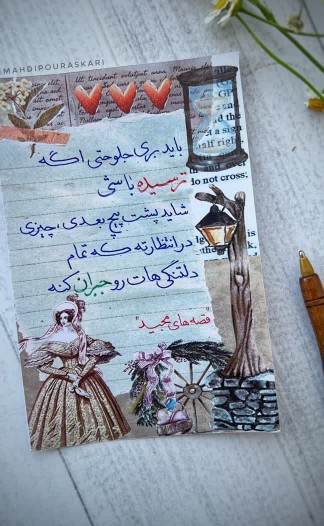 MAHDIPOURASKARI
باید بری جلو حتی اگه
ترسیده باشی
شاید پشت پیچ بعدی، چیزی
در انتظارته که تمام
دلتنگی هات رو جبران کنه
"قصه های مجید"
half right.
do not cross;